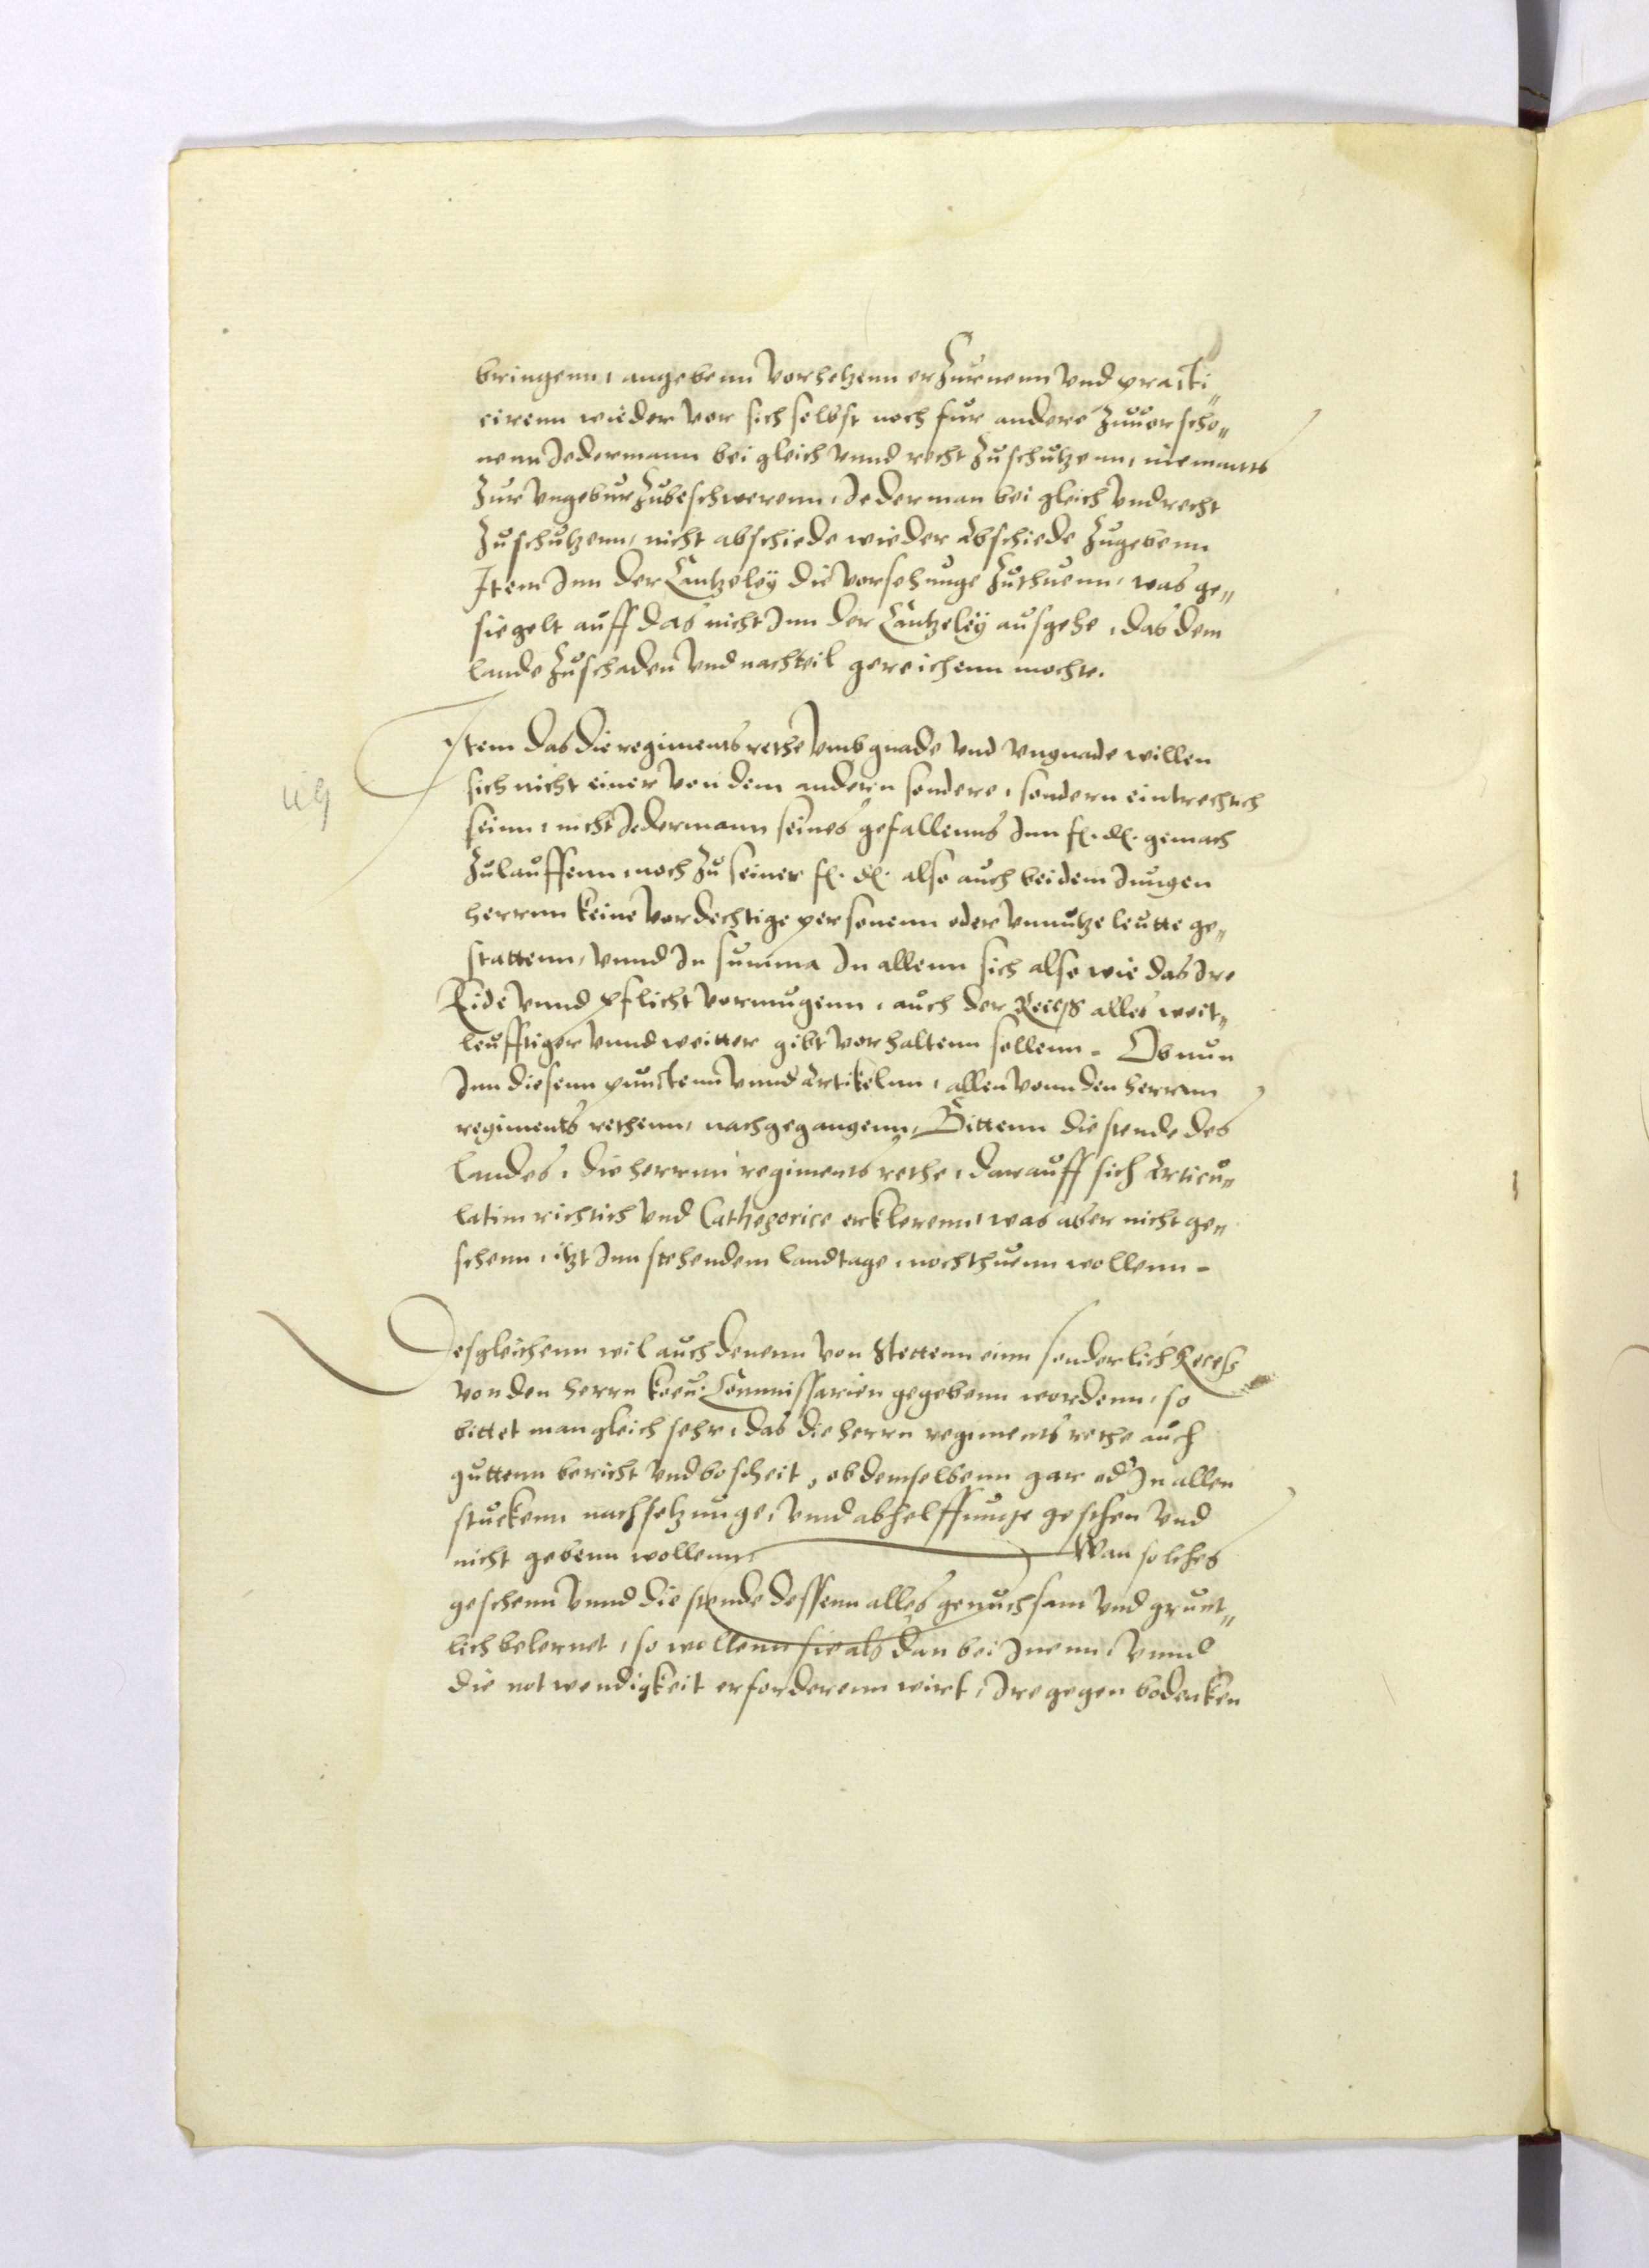 bringenn, angebenn vorhetzenn erzurnenn vnd practi„
cirenn wieder vor sich selbst noch fur andere zuuerscho„
nenn Jedermann bei gleich vnnd recht zuschutzenn, niemants
zur vngebur zubeschwerenn, Jederman bei gleich vnd recht
zuschutzenn, nicht abschiede wieder abschiede zugebenn
Item Inn der Cantzeleÿ die vorsehunge zuthuenn, was ge„
siegelt auff das nicht Inn der Cantzeleÿ ausgehe, das dem
lande zuschaden vnd nachteil gereichenn mochte.
Item das die regiments rethe vmb gnade vnd vngnade willen
sich nicht einer von dem andern sondere, sondern eintrechtich
seinn, nicht Jedermann seines gefallenns Inn f. d. gemach
zulauffenn noch zu seiner f. d. also auch bei dem Jungen
herrnn keine vordechtige personenn oder vnnutze leutte ge„
stattenn, vnnd In summa In allenn sich also wie das Ire
Eide vnnd pflicht vormugenn, auch der Recess alles weit„
leufftiger vnnd weitter gibt vorhaltenn sollenn. Ob nun
Inn diesenn punctenn vnnd Artikelnn, allen vonn den herrnn
regiments rethenn, nachgegangenn, Bittenn die stende des
landes, die herrnn regiments rethe, darauff sich Articu„
latim richtich vnd Cathegorice erklerenn, was aber nicht ge„
schenn, itzt Inn stehendem landtage, noch thuenn wollenn.
Desgleichenn wil auch denenn von Stettenn einn sonderlich Recess
von den herrn koeu. Commissarien gegebenn wordenn, so
bittet man gleich sehr, das die herrn regiments rethe auch
guttenn bericht vnd bescheit, ob demselbenn gar od' In allen
stuckenn nachsetzunge, vnnd abhelffunge geschen vnd
nicht gebenn wollenn. Wan solches
geschenn vnnd die stende dessenn alles genuchsam vnd grunt„
lich belernet, so wollenn sie als dan bei Inenn, vnnd
die notwendigkeit erforderenn wirt, Ire gegen bedenken